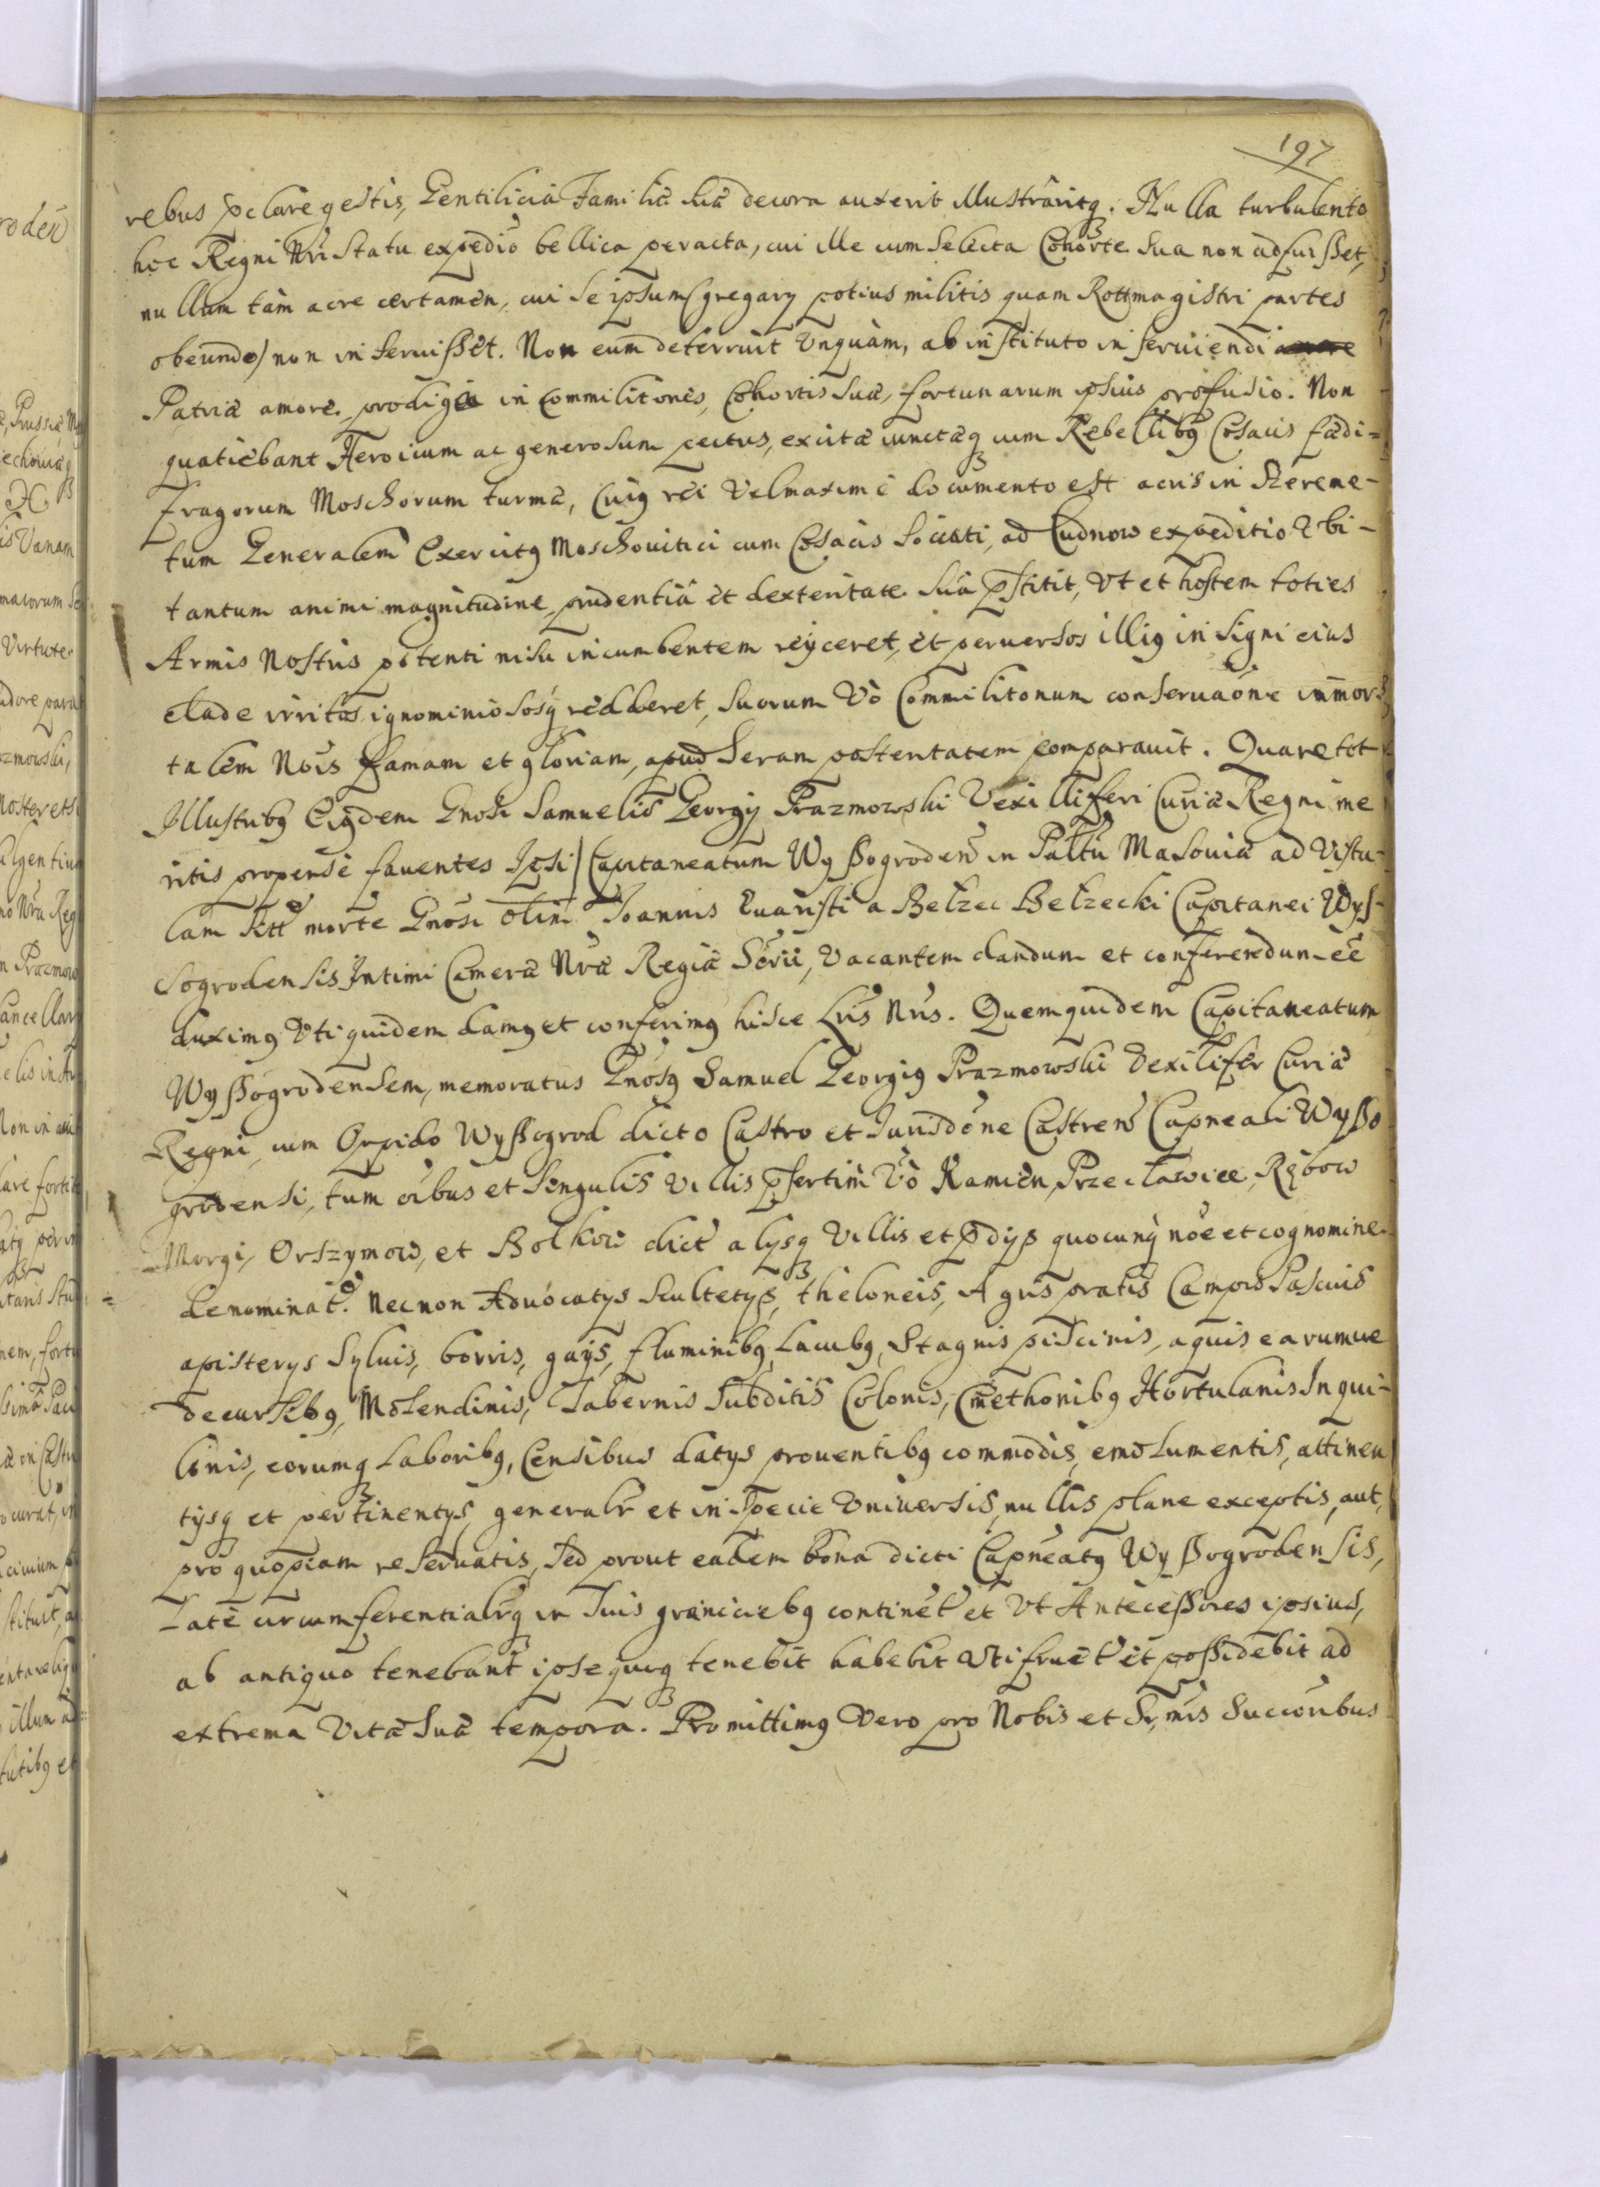 197
rebus pclare gestis, Gentilicia Familiæ suæ decora auxerit illustraritq. Nulla turbulento
hoc Regni Nri statu expedio bellica peracta, cui ille cum selecta Cohorte sua non adfuisset,
nullum tàm acre certamen, cui se ipsum (gregarij potius militis quam Rottmagistri partes
obeundo) non inseruissèt. Non eum deterruit Vnquàm, ab instituto inseruiendi
Patriæ amore, prodiga in Commilitones, Cohortis suæ, fortunarum ipsius profusio. Non
quatiebant Heroicum ac generosum pectus, excitæ iunctæq cum Rebellibq Cosacis fædi-
fragorum Moschorum turmæ, Cuiq rei Vel maximè documento est acris in Szereme-
tum Generalem Exercitq Moschouitici cum Cosacis sociati, ad Cudnow expeditio Vbi-
tantum animi magnitudine, prudentiâ èt dexteritate suâ pstitit, Vt et hostem toties
Armis Nostris potenti nisu incumbentem reijceret, èt peruersos illiq insigni eius
clade irritos ignominiososq redderet, suorum Vò Commilitonum conseruaõne immor-
talem Nois famam et gloriam, apud seram posteritatem comparauit. Quare tot
Illustribq Eiqdem Gnosi Samuelis Georgij Prazmowski Vexilliferi Curiæ Regni me
ritis propensè fauentes Ipsi) Capitaneatum Wyssogroden in Paltu Masouiæ ad Vistu-
lam sitt morte Gnosi olim Joannis Euaristi a Bełzec Bełzecki Capitanei Wys-
sogrodensis Intimi Cameræ Nræ Regiæ Sërii, Vacantem dandum et conferendum eë
duximq Vti quidem damq et conferimq hisce Lris Nris. Quemquidem Capitaneatum
Wyssogrodensem, memoratus Gnosq Samuel Georgiq Prazmowski Vexilifer Curiæ
Regni, cum Oppido Wyssogrod dicto Castro et Jurisdõne Castren Capneali Wysso
grodensi, tum oibus et singulis Villis psertim Vò Kamièn, Przecławice, Rębow
Morgi, Orszymow, et Bolkow dict alijsq Villis et pdijs quocunq noe et cognomine
denominat. Necnon Aduocatijs scultetijs, theloneis, Agris pratis Campis Pascuis
apisterijs syluis, borris, gaijs, fluminibq, Lacubq, Stagnis piscinis, aquis earumue
decursibq, Molendinis, Tabernis subditis Colonis, Cmethonibq Hortulanis Inqui-
linis, eorumq laboribq, Censibus datijs prouentibq commodis, emolumentis, attinen
tijsq et pertinentijs, generalr et in specie Vniuersis, nullis plane exceptis, aut,
pro quopiam reseruatis, sed prout eadem bona dicti Capneatq Wyssogrodensis,
Latè circumferentialrq in suis graniciebq continèt et Vt Antecessores ipsius,
ab antiquo tenebant ipse quoq tenebit habebit Vtifruèt èt possidebit ad
extrema Vitæ suæ tempora. Promittimq Vero pro Nobis et Srmis Succoribus